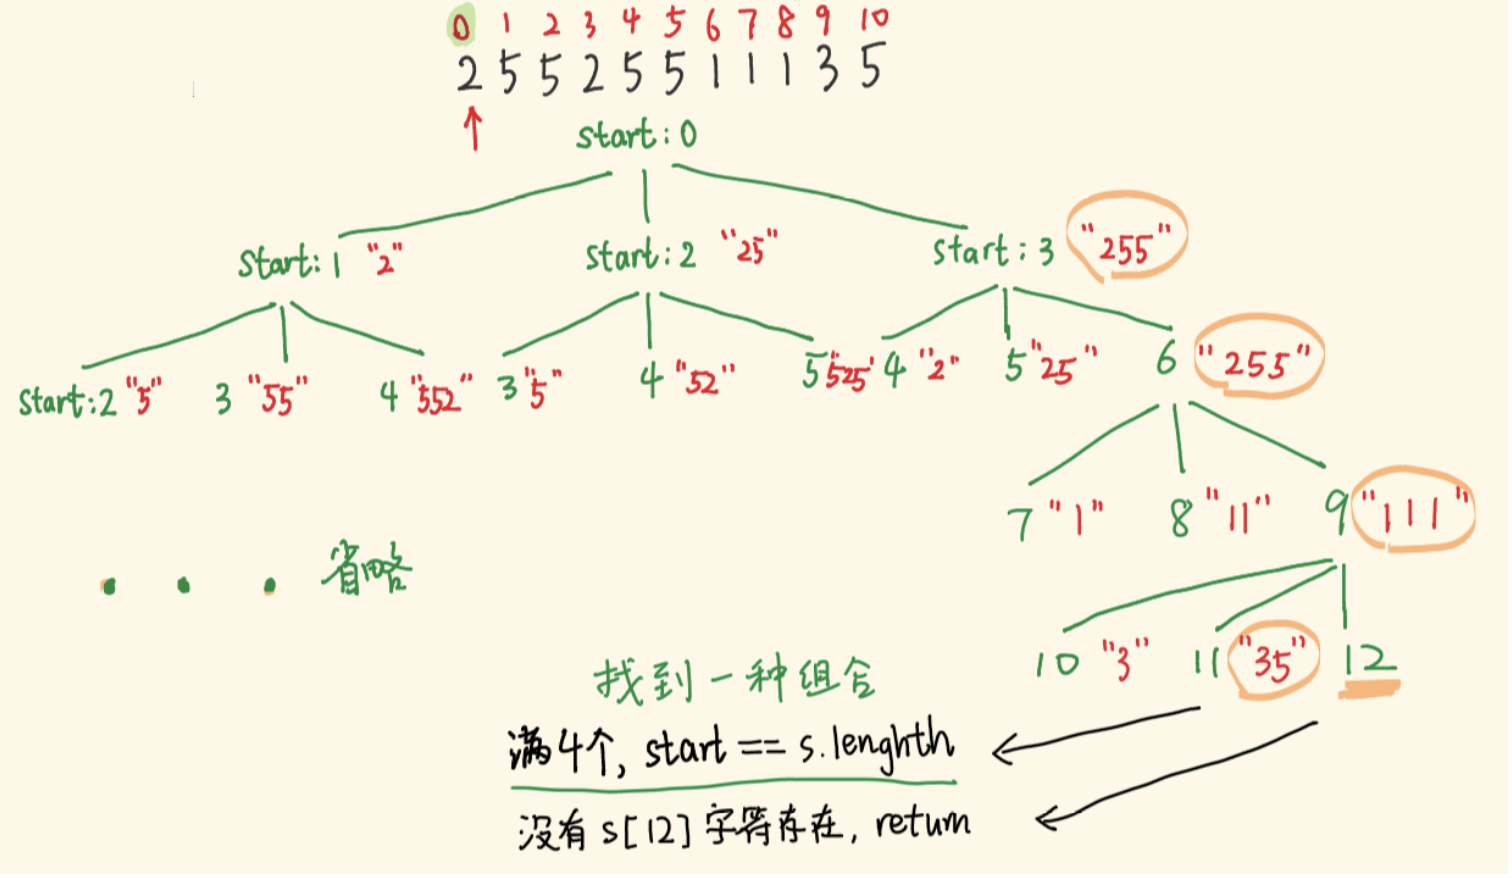 0 1 2 3 4 5 6 7 8 9 10
2 5 5 2 5 5 1 1 1 3 5
start:0
start:1 "2" start:2 "25" start:3 "255"
start:2 "5" 3 "55" 4 "552" 3 "5" 4 "52" 5 "525" 4 "2" 5 "25" 6 "255"
7 "1" 8 "11" 9 "111"
省略
10 "3" 11 "35" 12
找到一种组合
满4个, start == s.lenghth
没有 s[12] 字符存在, return